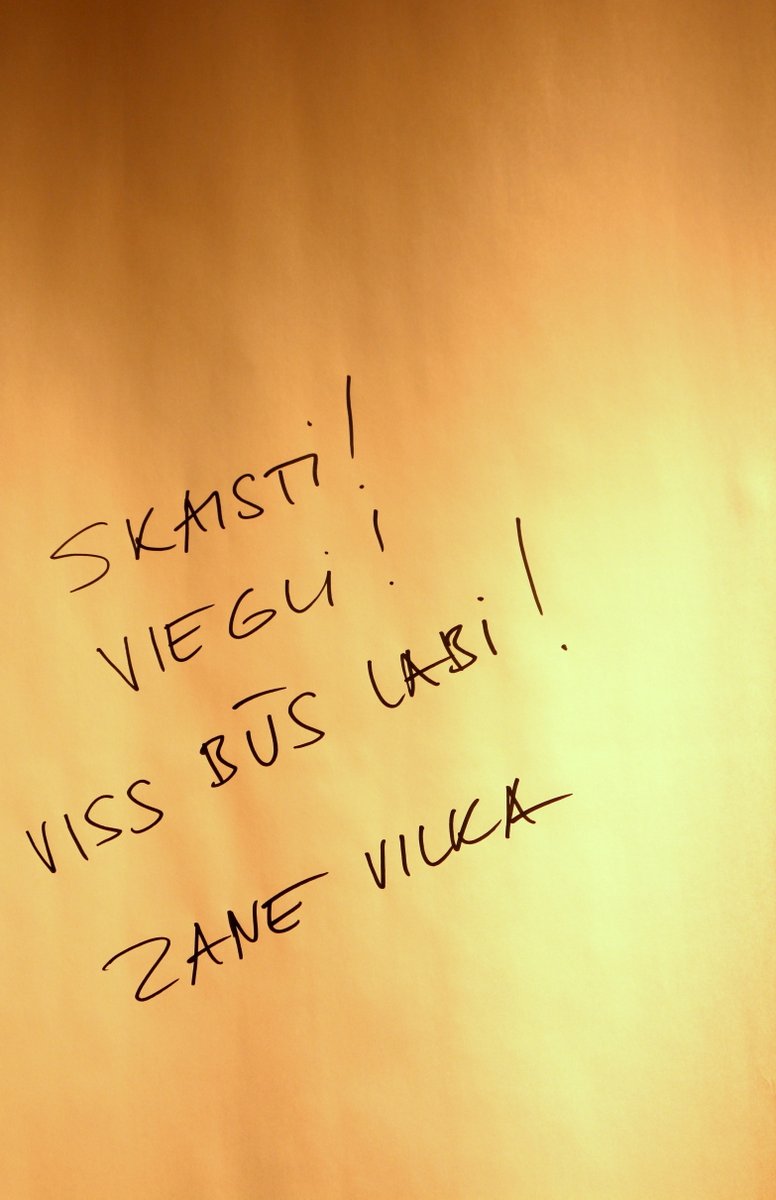 SKAISTi!
VIEGLi!
VISS BŪS LABi!
ZANE VILKA